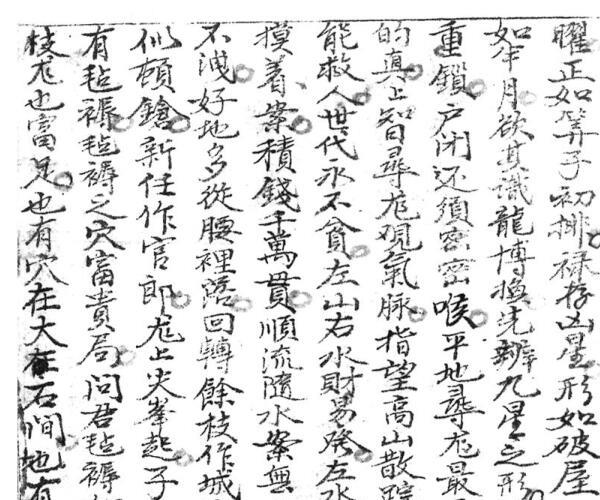 曜正如筭子初排禄存凶星形如破屋
如半月欲其識龍博換先辨九星之形
重鎖户閉还須密密喉平地尋龙最
的真上智尋龙观氣脉指望高山散
能救人世代永不貧左山右水財易發左水
摸着案積錢千萬貫順流隨水案無
不洩好地多從腰裡落回轉餘枝作城
似頓鎗新任作官郎龙上尖峯起子
有毡褥毡褥之穴富貴局問君毡褥
枝龙也富足也有穴在大在石間地有